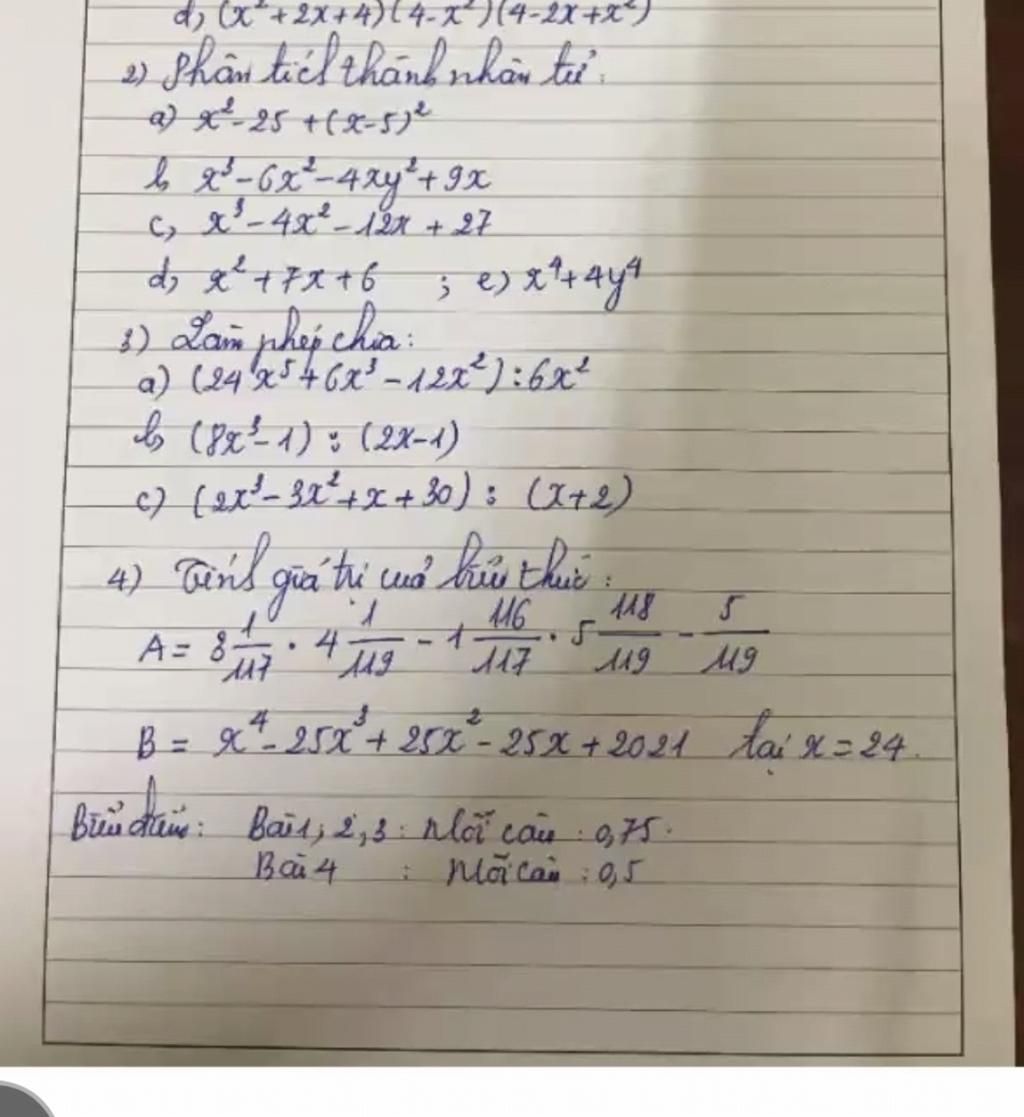 d, (x²+2x+4)(4-x²)(4-2x+x²)
2) Phân tích thành nhân tử:
a) x²-25+(x-5)²
b, x³-6x²-4xy²+9x
c, x³-4x²-12x+27
d, x²+7x+6 ; e) x⁴+4y⁴
3) Làm phép chia:
a) (24x⁵+6x³-12x²):6x²
b, (8x³-1) : (2x-1)
c) (2x³-3x²+x+30) : (x+2)
4) Tính giá trị của biểu thức:
A = 3 1/117 · 4 1/119 - 1 116/117 · 5 118/119 - 5/119
B = x⁴-25x³+25x²-25x+2021 tại x=24.
Biểu điểm: Bài 1, 2, 3: Mỗi câu: 0,75.
Bài 4 : Mỗi câu: 0,5